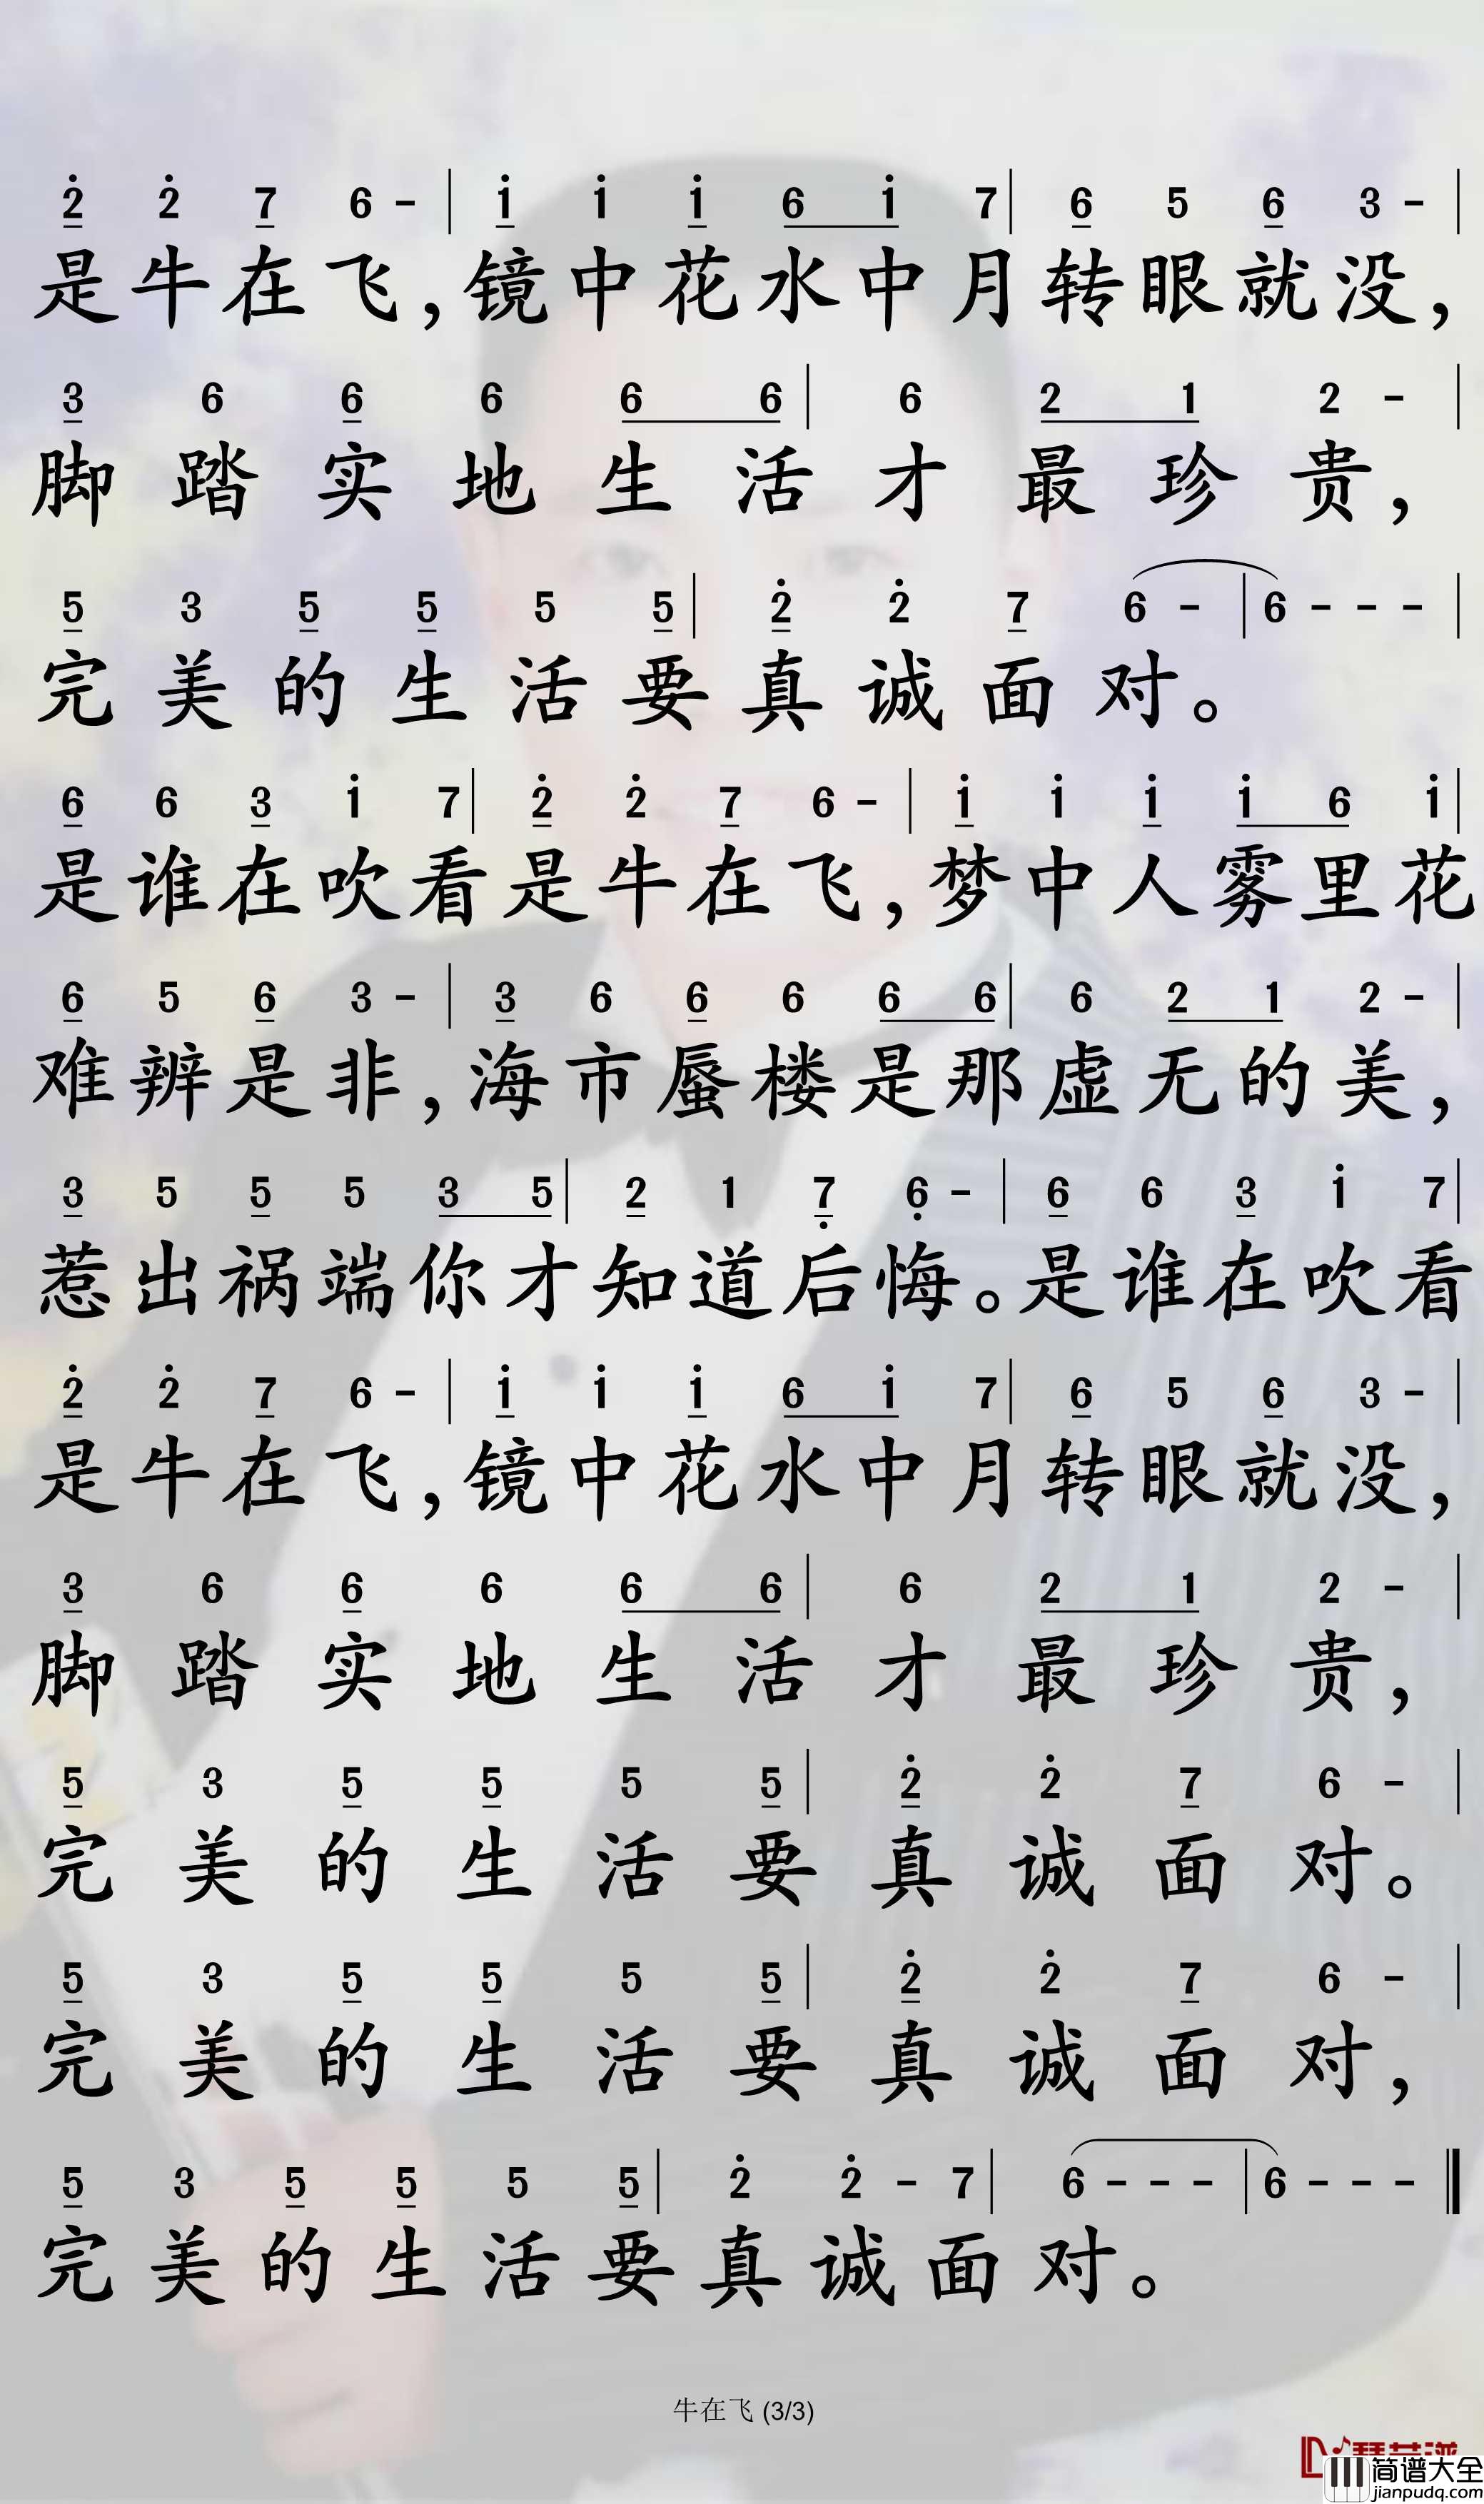 2 2 7 6 - | 1 1 1 6 1 7 | 6 5 6 3 - |
是牛在飞,镜中花水中月转眼就没,
3 6 6 6 6 6 | 6 2 1 2 - |
脚踏实地生活才最珍贵,
5 3 5 5 5 5 | 2 2 7 6 - | 6 - - - |
完美的生活要真诚面对。
6 6 3 1 7 | 2 2 7 6 - | 1 1 1 1 6 1 |
是谁在吹看是牛在飞,梦中人雾里花
6 5 6 3 - | 3 6 6 6 6 6 | 6 2 1 2 - |
难辨是非,海市蜃楼是那虚无的美,
3 5 5 5 3 5 | 2 1 7 6 - | 6 6 3 1 7 |
惹出祸端你才知道后悔。是谁在吹看
2 2 7 6 - | 1 1 1 6 1 7 | 6 5 6 3 - |
是牛在飞,镜中花水中月转眼就没,
3 6 6 6 6 6 | 6 2 1 2 - |
脚踏实地生活才最珍贵,
5 3 5 5 5 5 | 2 2 7 6 - |
完美的生活要真诚面对。
5 3 5 5 5 5 | 2 2 7 6 - |
完美的生活要真诚面对,
5 3 5 5 5 5 | 2 2 - 7 | 6 - - - | 6 - - - ||
完美的生活要真诚面对。
牛在飞 (3/3)
简谱大全
jianpudq.com